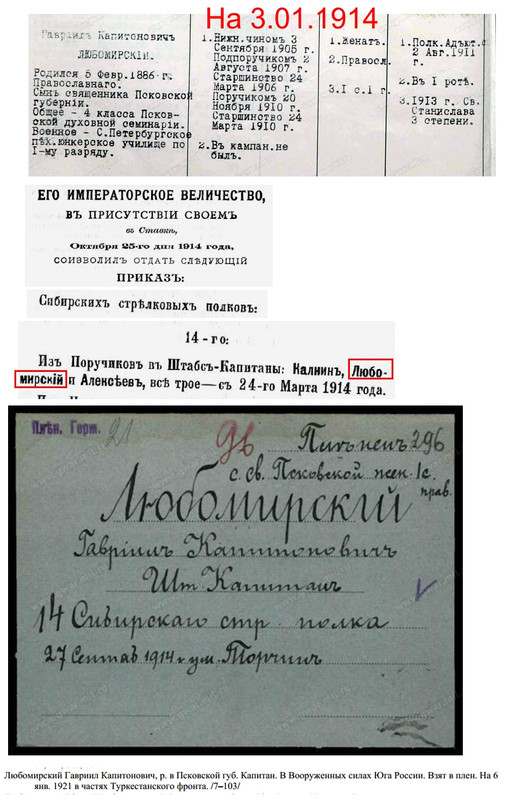 На 3.01.1914
Гавріилъ Капитоновичъ
ЛЮБОМИРСКІЙ.
Родился 5 Февр.1886 г.
Православнаго.
Сынъ священника Псковской
губерніи.
Общее – 4 класса Псков-
ской духовной семинаріи.
Военное – С.Петербургское
пѣх.юнкерское училище по
І-му разряду.
1.Нижн.чиномъ 3
Сентября 1905 г.
Подпоручикомъ 2
Августа 1907 г.
Старшинство 24
Марта 1906 г.
Поручикомъ 20
Ноября 1910 г.
Старшинство 24
Марта 1910 г.
2.Въ кампан.не
былъ.
1.Женатъ.
2.Правосл.
3.І с.1 г.
1.Полк.Адъют.
2 Авг.1911
г.
2.Въ І ротѣ.
3.1913 г. Св.
Станислава
3 степени.
ЕГО ИМПЕРАТОРСКОЕ ВЕЛИЧЕСТВО,
ВЪ ПРИСУТСТВІИ СВОЕМЪ
въ Ставкѣ,
Октября 25-го дня 1914 года,
СОИЗВОЛИЛЪ ОТДАТЬ СЛѢДУЮЩІЙ
ПРИКАЗЪ:
Сибирскихъ стрѣлковыхъ полковъ:
14-го:
Изъ Поручиковъ въ Штабсъ-Капитаны: Калнинъ, Любо-
мирскій и Алексѣевъ, всѣ трое—съ 24-го Марта 1914 года.
Плѣн. Герм. 21
9в
296
с. св. Псковской 1с.
прав.
Любомирскій
Гавріилъ Капитоновичъ
Шт. Капитанъ
14 Сибирскаго стр полка
27 Сентяб 1914 г. ум. Торчинъ
Любомирский Гавриил Капитонович, р. в Псковской губ. Капитан. В Вооруженных силах Юга России. Взят в плен. На 6
янв. 1921 в частях Туркестанского фронта. /7–103/